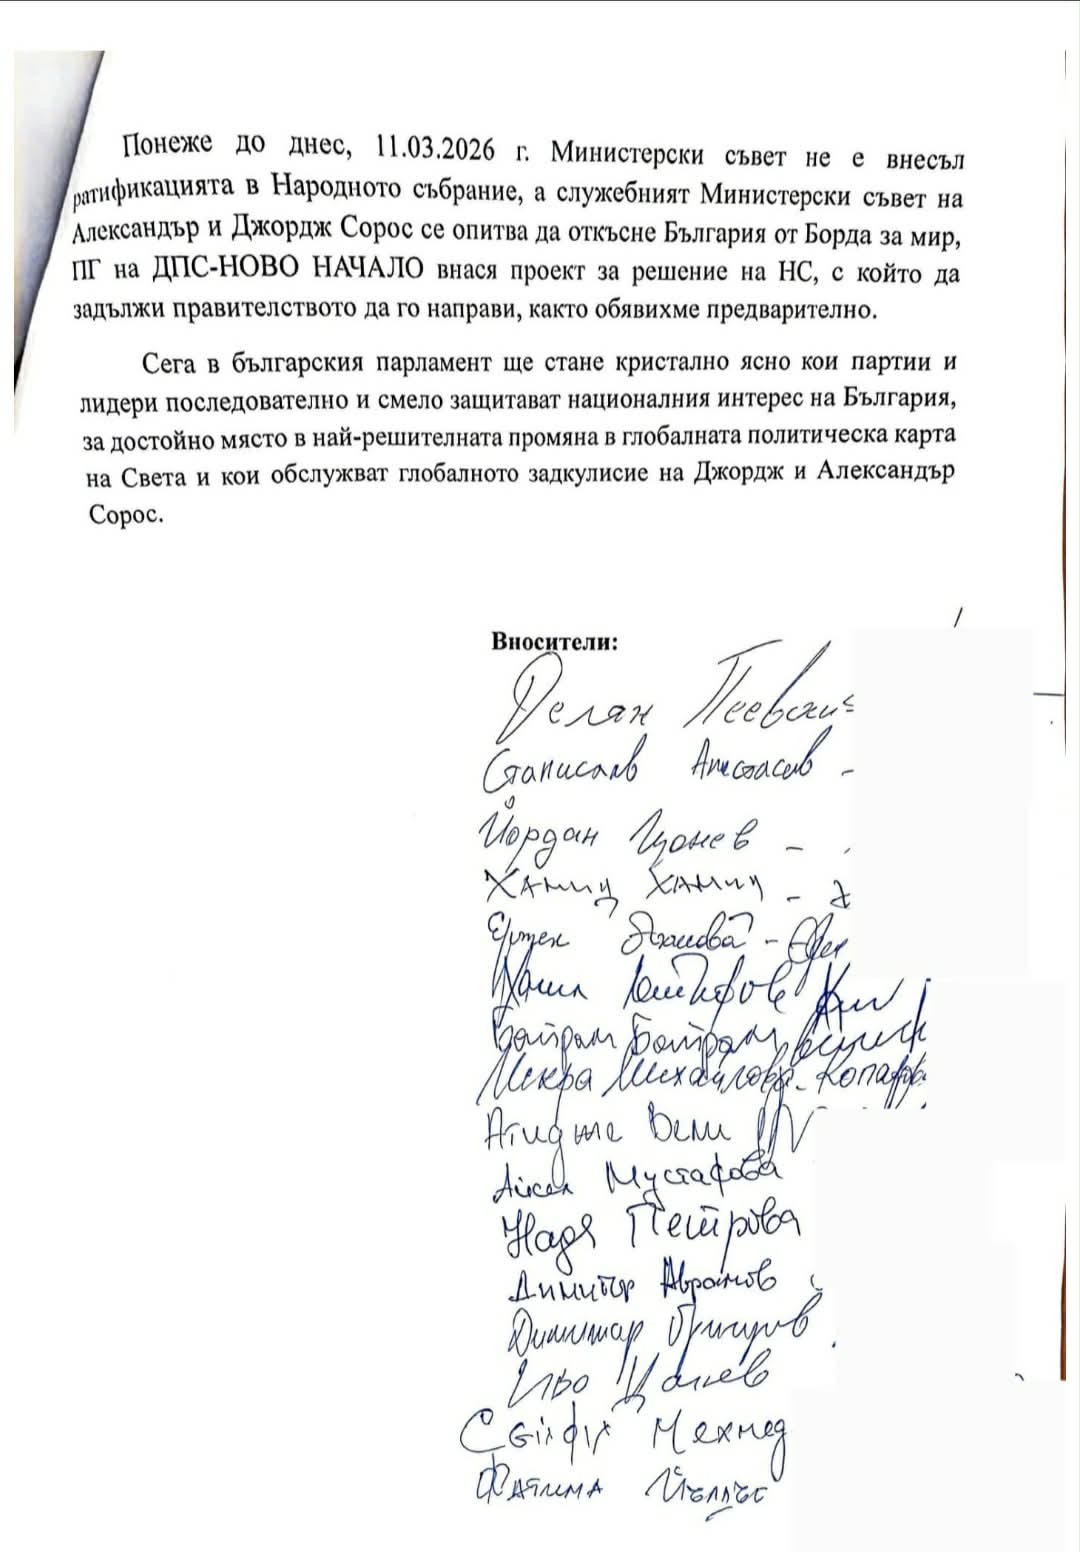 Понеже до днес, 11.03.2026 г. Министерски съвет не е внесъл
ратификацията в Народното събрание, а служебният Министерски съвет на
Александър и Джордж Сорос се опитва да откъсне България от Борда за мир,
ПГ на ДПС-НОВО НАЧАЛО внася проект за решение на НС, с който да
задължи правителството да го направи, както обявихме предварително.
Сега в българския парламент ще стане кристално ясно кои партии и
лидери последователно и смело защитават националния интерес на България,
за достойно място в най-решителната промяна в глобалната политическа карта
на Света и кои обслужват глобалното задкулисие на Джордж и Александър
Сорос.
Вносители:
Делян Пеевски
Станислав Анастасов -
Йордан Цонев -
Хамид Хамид -
Ертен Анисова -
Халил Летифов
Байрам Байрам
Искра Михайлова-Копарова
Атидже Вели
Айсел Мустафова
Надя Петрова
Димитър Аврамов
Димитър
Ильо Цанев
Сейфи Мехмед
Фатима Йълдъз